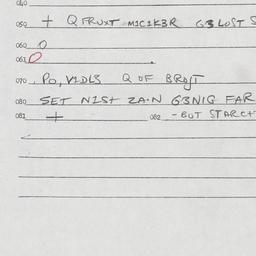 040
050 + Q FRUXT M1C1K3R G3 LOST S
060 0
061 0
070 . PO, V1DL3 Q OF BROST
080 SET N1St ZA·N G3N1G FAR
081 + 082 - BUT STARCH